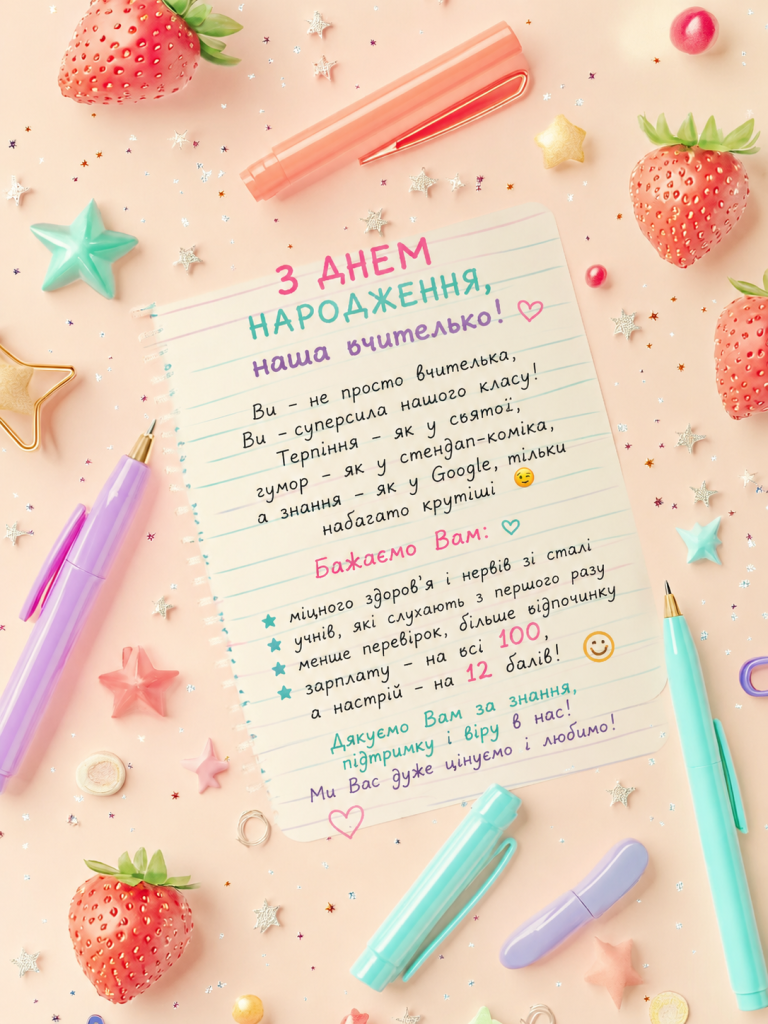 З ДНЕМ
НАРОДЖЕННЯ,
наша вчителько!
Ви – не просто вчителька,
Ви – суперсила нашого класу!
Терпіння – як у святої,
гумор – як у стендап-коміка,
а знання – як у Google, тільки
набагато крутіші 😉
Бажаємо Вам:
міцного здоров'я і нервів зі сталі
учнів, які слухають з першого разу
менше перевірок, більше відпочинку
зарплату – на всі 100,
а настрій – на 12 балів!
Дякуємо Вам за знання,
підтримку і віру в нас!
Ми Вас дуже цінуємо і любимо!